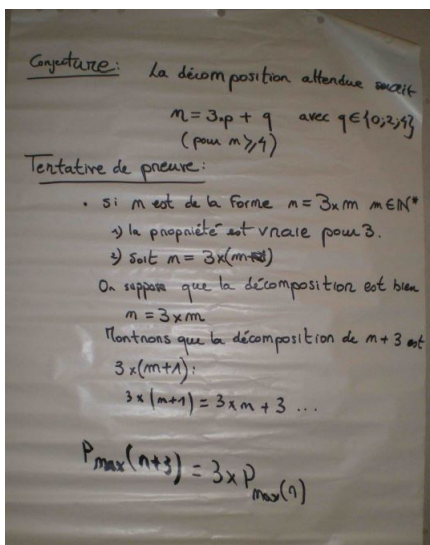 Conjecture : La décomposition attendue serait
n = 3.p + q avec q ∈ {0;2;4}
(pour n ⩾ 4)
Tentative de preuve :
• si n est de la forme n = 3 x m m ∈ ℕ*
1) la propriété est vraie pour 3.
2) Soit n = 3 x (m
On suppose que la décomposition est bien
n = 3 x m
Montrons que la décomposition de n + 3 est
3 x (m+1) :
3 x (m+1) = 3 x m + 3 ...
P max (n+3) = 3 x P max (n)